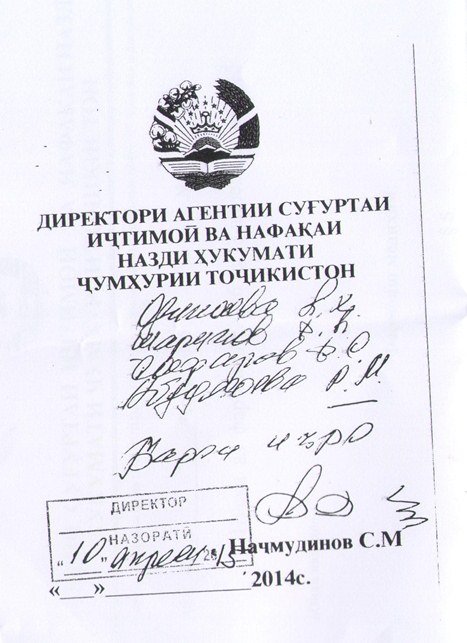 ДИРЕКТОРИ АГЕНТИИ СУҒУРТАИ
ИҶТИМОӢ ВА НАФАҚАИ
НАЗДИ ҲУКУМАТИ
ҶУМҲУРИИ ТОҶИКИСТОН
Р.М.
Барои иҷро
ДИРЕКТОР
НАЗОРАТӢ
"10" апрели 2015
Наҷмудинов С.М
«___»_______________2014с.